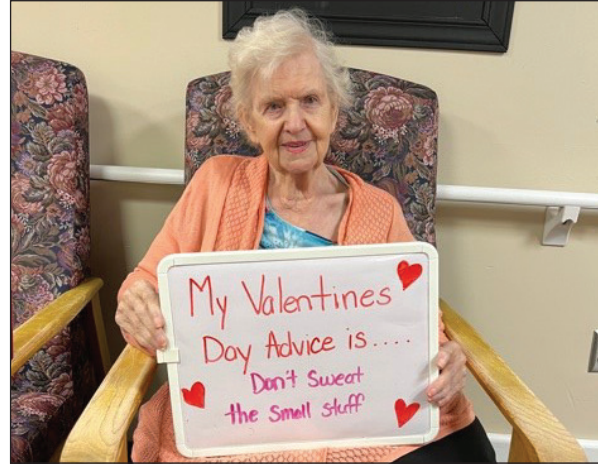 My Valentines
Day Advice is....
Don't Sweat
the Small stuff